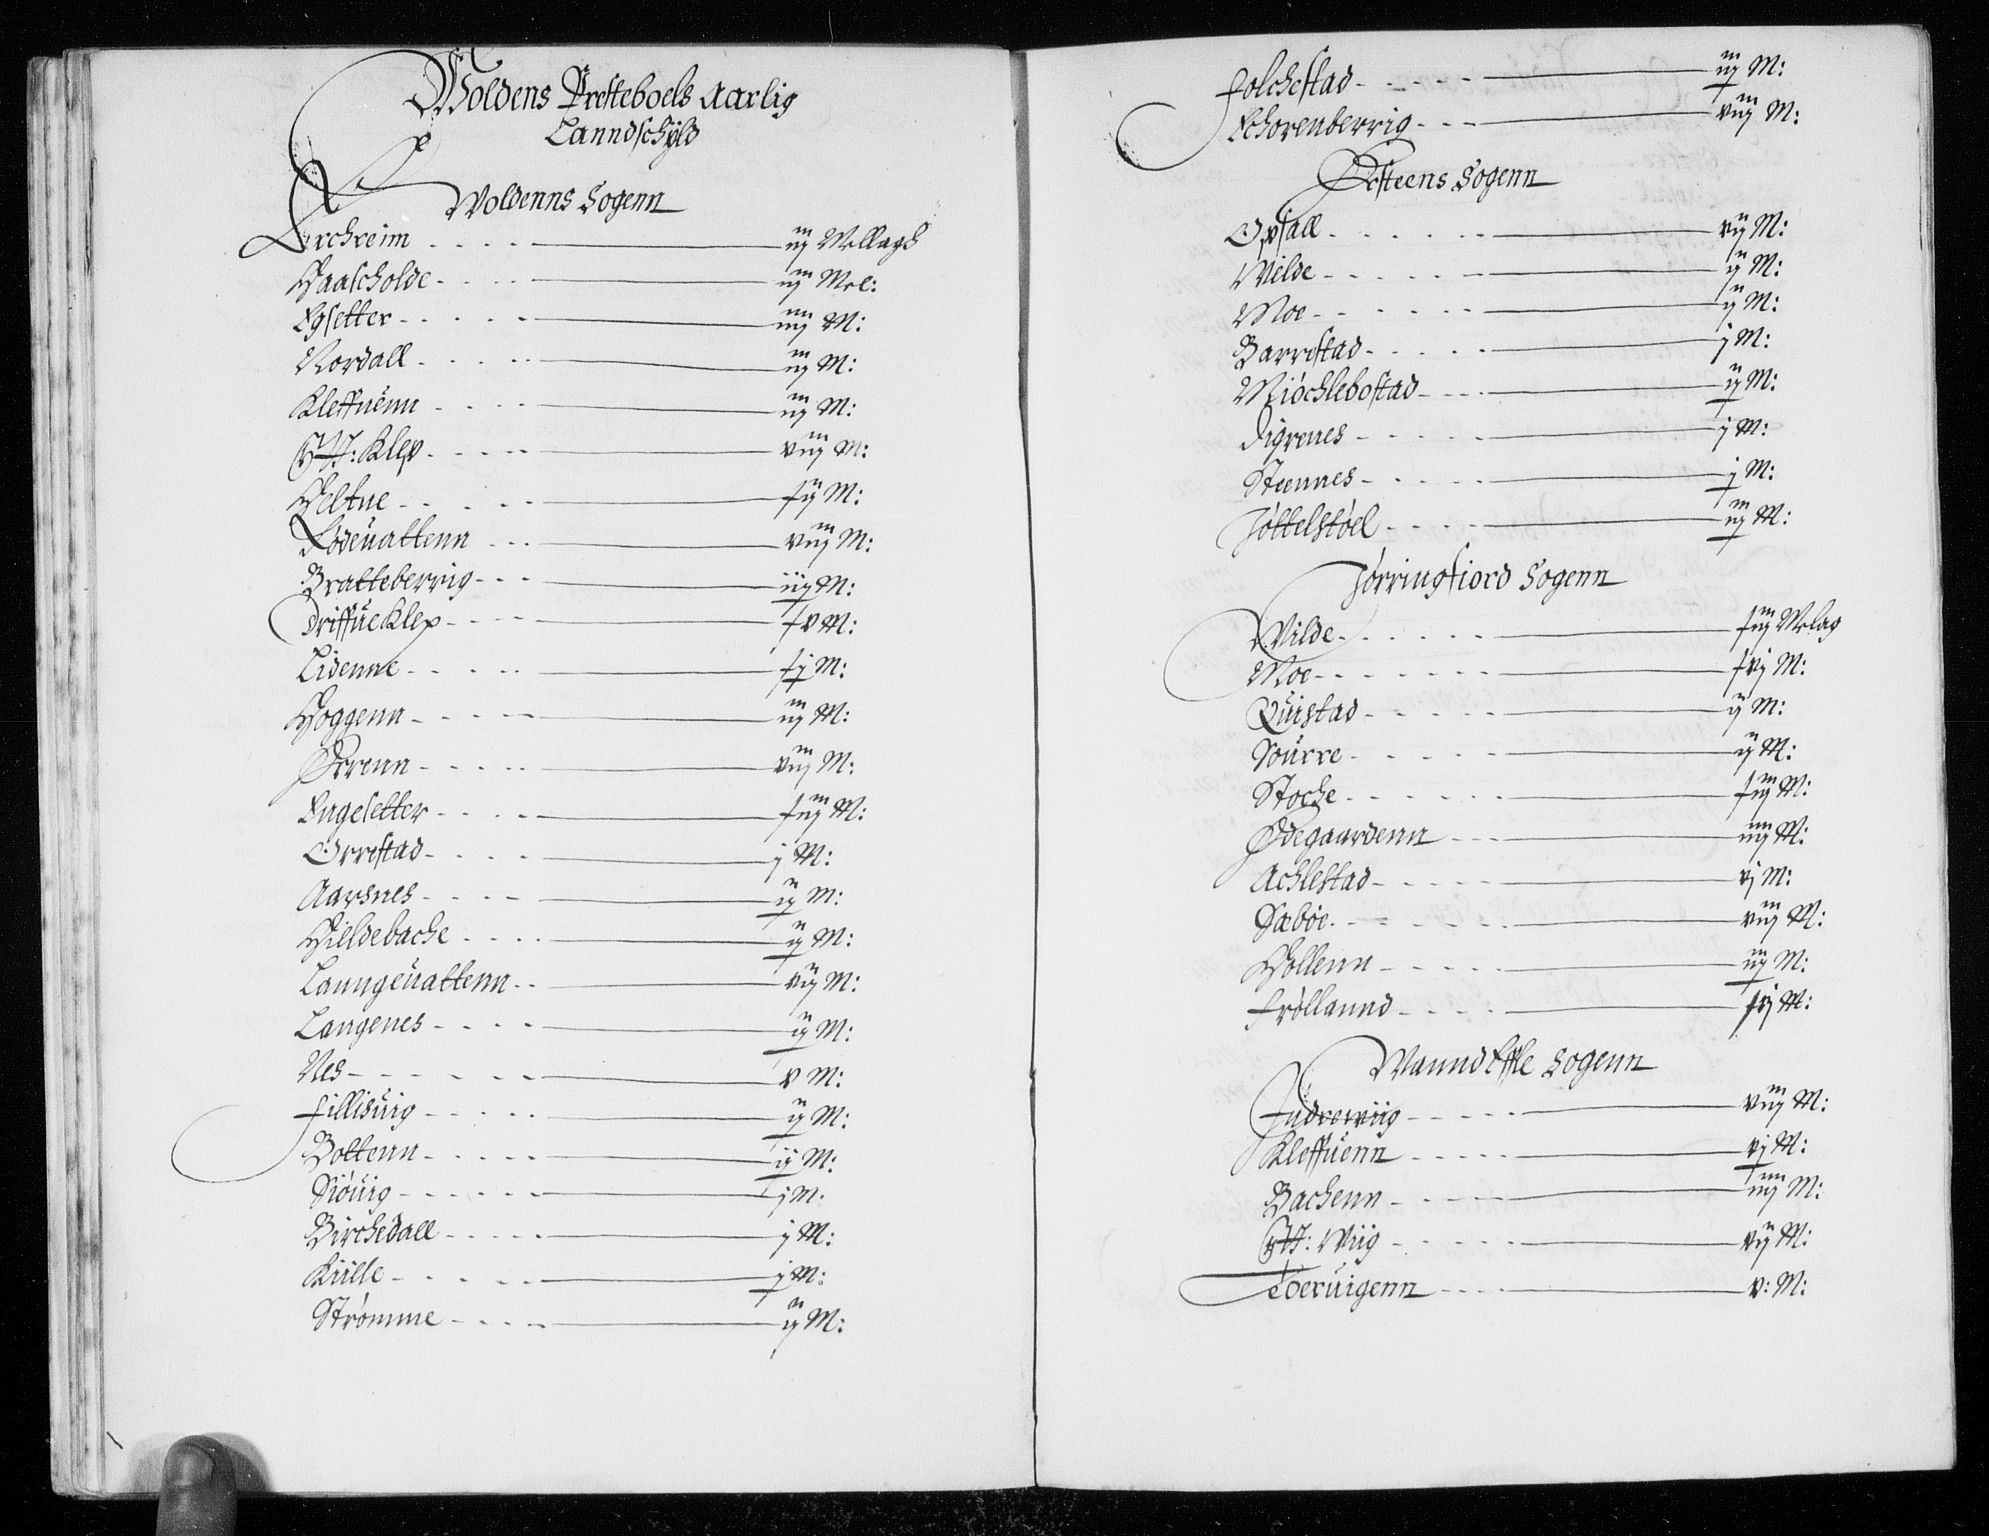 Woldens Presteboels Aarlig
Lanndschÿld
Woldenns Sogenn
Erchreim - - - - iij Mellagh
Haascholde - - - - iij Mel:
Egsetter - - - - iiij M:
Nordall - - - - iij M:
Kleffuenn - - - - iij M:
Ytt: Klep - - - - viij M:
Heltne - - - - ſ ij M:
Rødeuattenn - - - viij M:
Bratteberrig - - - iij M:
Driffueklep - - - - ſ v M:
Lidenne - - - - ſ j M:
Hoggenn - - - - iij M:
Ørrenn - - - - viij M:
Engesetter - - - - ſ iij M:
Orrestad - - - - j M:
Aarsnes - - - - ij M:
Hildebache - - - - ij M:
Lanngeuattenn - - vij M:
Langenes - - - - ij M:
Nes - - - - - - v M:
Fillisuig - - - - ij M:
Bottenn - - - - ij M:
Siøuig - - - - - j M.
Birchedall - - - - j M:
Kiille - - - - j M:
Strømme - - - - ij M:
Folchestad - - - - - iij M:
Echorenberrig - - - viij M:
Østeens Sogenn
Opsall - - - - - vij M:
Wilde - - - - - ij M:
Moe - - - - - - ij M:
Barrestad - - - - - j M:
Miøchlebostad - - - ij M:
Digrenes - - - - - j M:
Steennes - - - - - j M:
Jøttelstøel - - - - iij M:
Jørringfiord Sogenn
Wilde - - - - - - ſ iij Melag
Moe - - - - - - ſ vj M:
Quistad - - - - - ij M:
Sourre - - - - - ij M:
Stoche - - - - - - ſ iij M:
Ødegaardenn - - - iiij M:
Achlestad - - - - - vj M:
Sæbøe - - - - - - viij M:
Hollenn - - - - - iij M:
Frøllannd - - - - ſ vj M:
Wannd Effle Sogenn
Indrewiig - - - - - viij M:
Kleffuenn - - - - - vj M:
Bachenn - - - - - iiij M:
Ytt: Wiig - - - - - vij M:
Leeruigenn - - - - v: M: